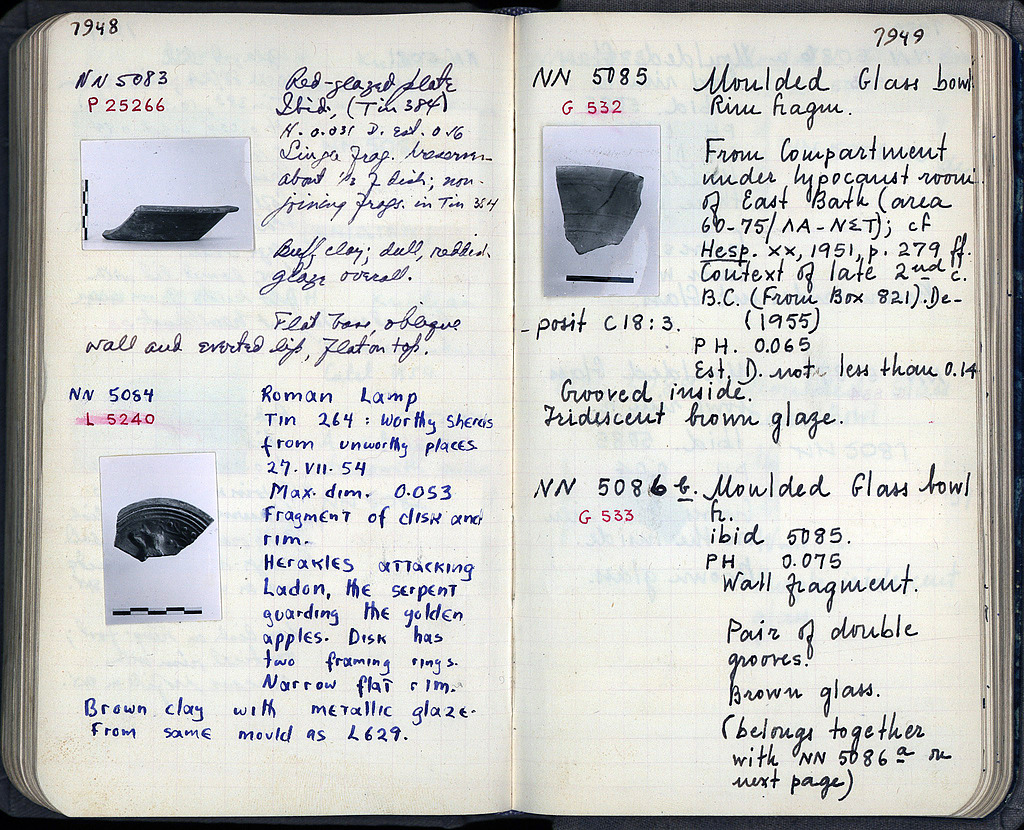 7948
NN 5083
P 25266
Red-glazed plate
Ibid, (Tin 384)
H. 0.031 D. est. 0.16
Single frag. preserves
about 1/3 of dish; non-
joining frags. in Tin 384
Buff clay; dull, reddish
glaze overall.
Flat base, oblique
wall and everted lip, flat on top.
NN 5084
L 5240
Roman Lamp
Tin 264 : Worthy Sherds
from unworthy places
27. VII. 54
Max. dim. 0.053
Fragment of disk and
rim.
Herakles attacking
Ladon, the serpent
guarding the golden
apples. Disk has
two framing rings.
Narrow flat rim.
Brown clay with metallic glaze.
From same mould as L629.
7949
NN 5085
G 532
Moulded Glass bowl
Rim fragm.
From Compartment
under hypocaust room
of East Bath (area
60-75/ΛΑ-ΝΣΤ); cf
Hesp. xx, 1951, p. 279 ff.
Context of late 2nd c.
B.C. (From Box 821). De-
posit C18:3. (1955)
PH. 0.065
Est. D. not less than 0.14
Grooved inside.
Iridescent brown glaze.
NN 5086 b. Moulded Glass bowl
G 533
fr.
ibid 5085.
PH 0.075
Wall fragment.
Pair of double
grooves.
Brown glass.
(belongs together
with NN 5086 a on
next page)